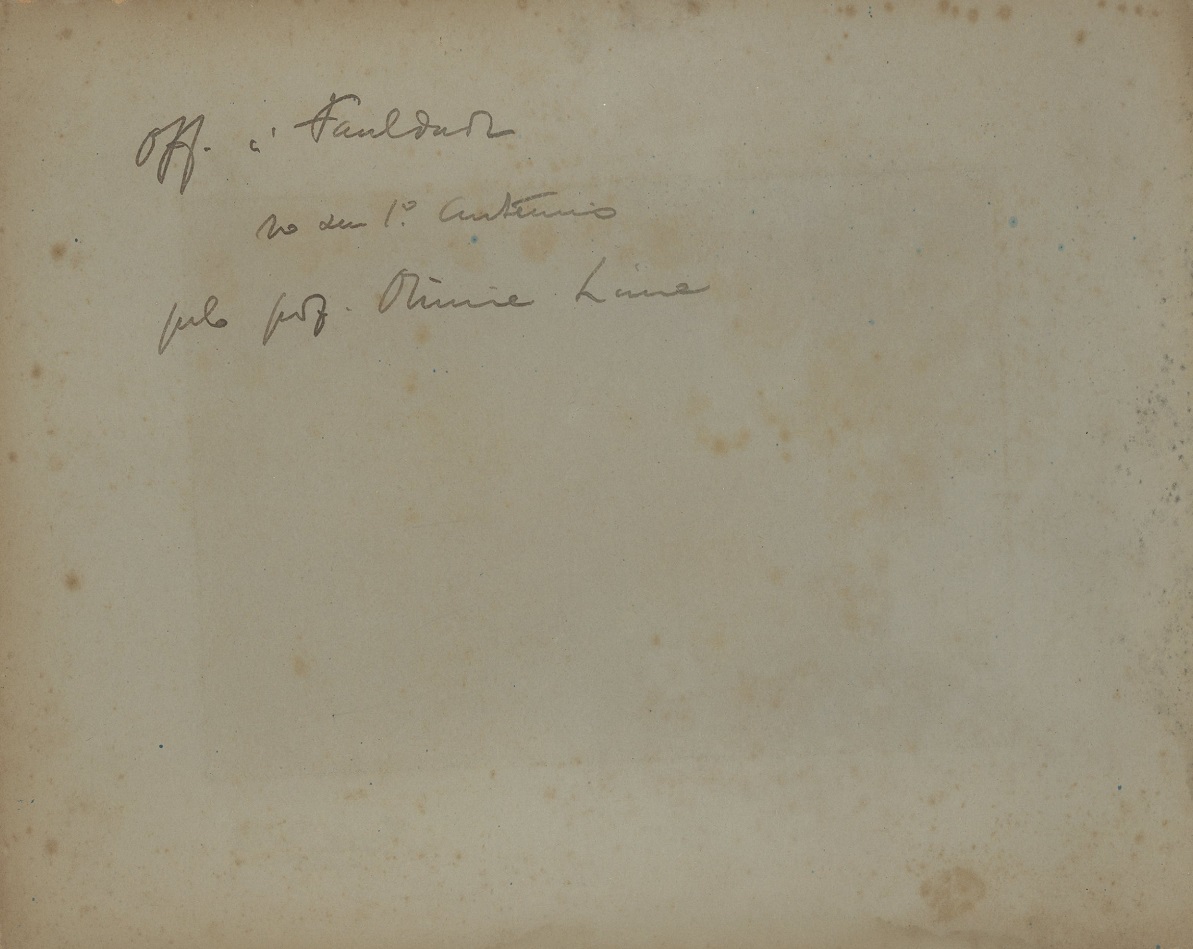 Off. á Faculdade
no seu 1º Centenario
pelo prof. Lima